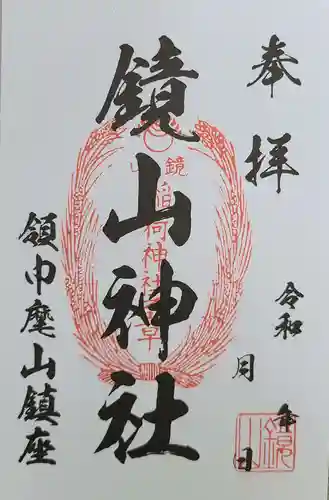 奉拝
令和 年 月 日
鏡山神社
鏡山
稲荷神社
領巾麾山鎮座
鏡山